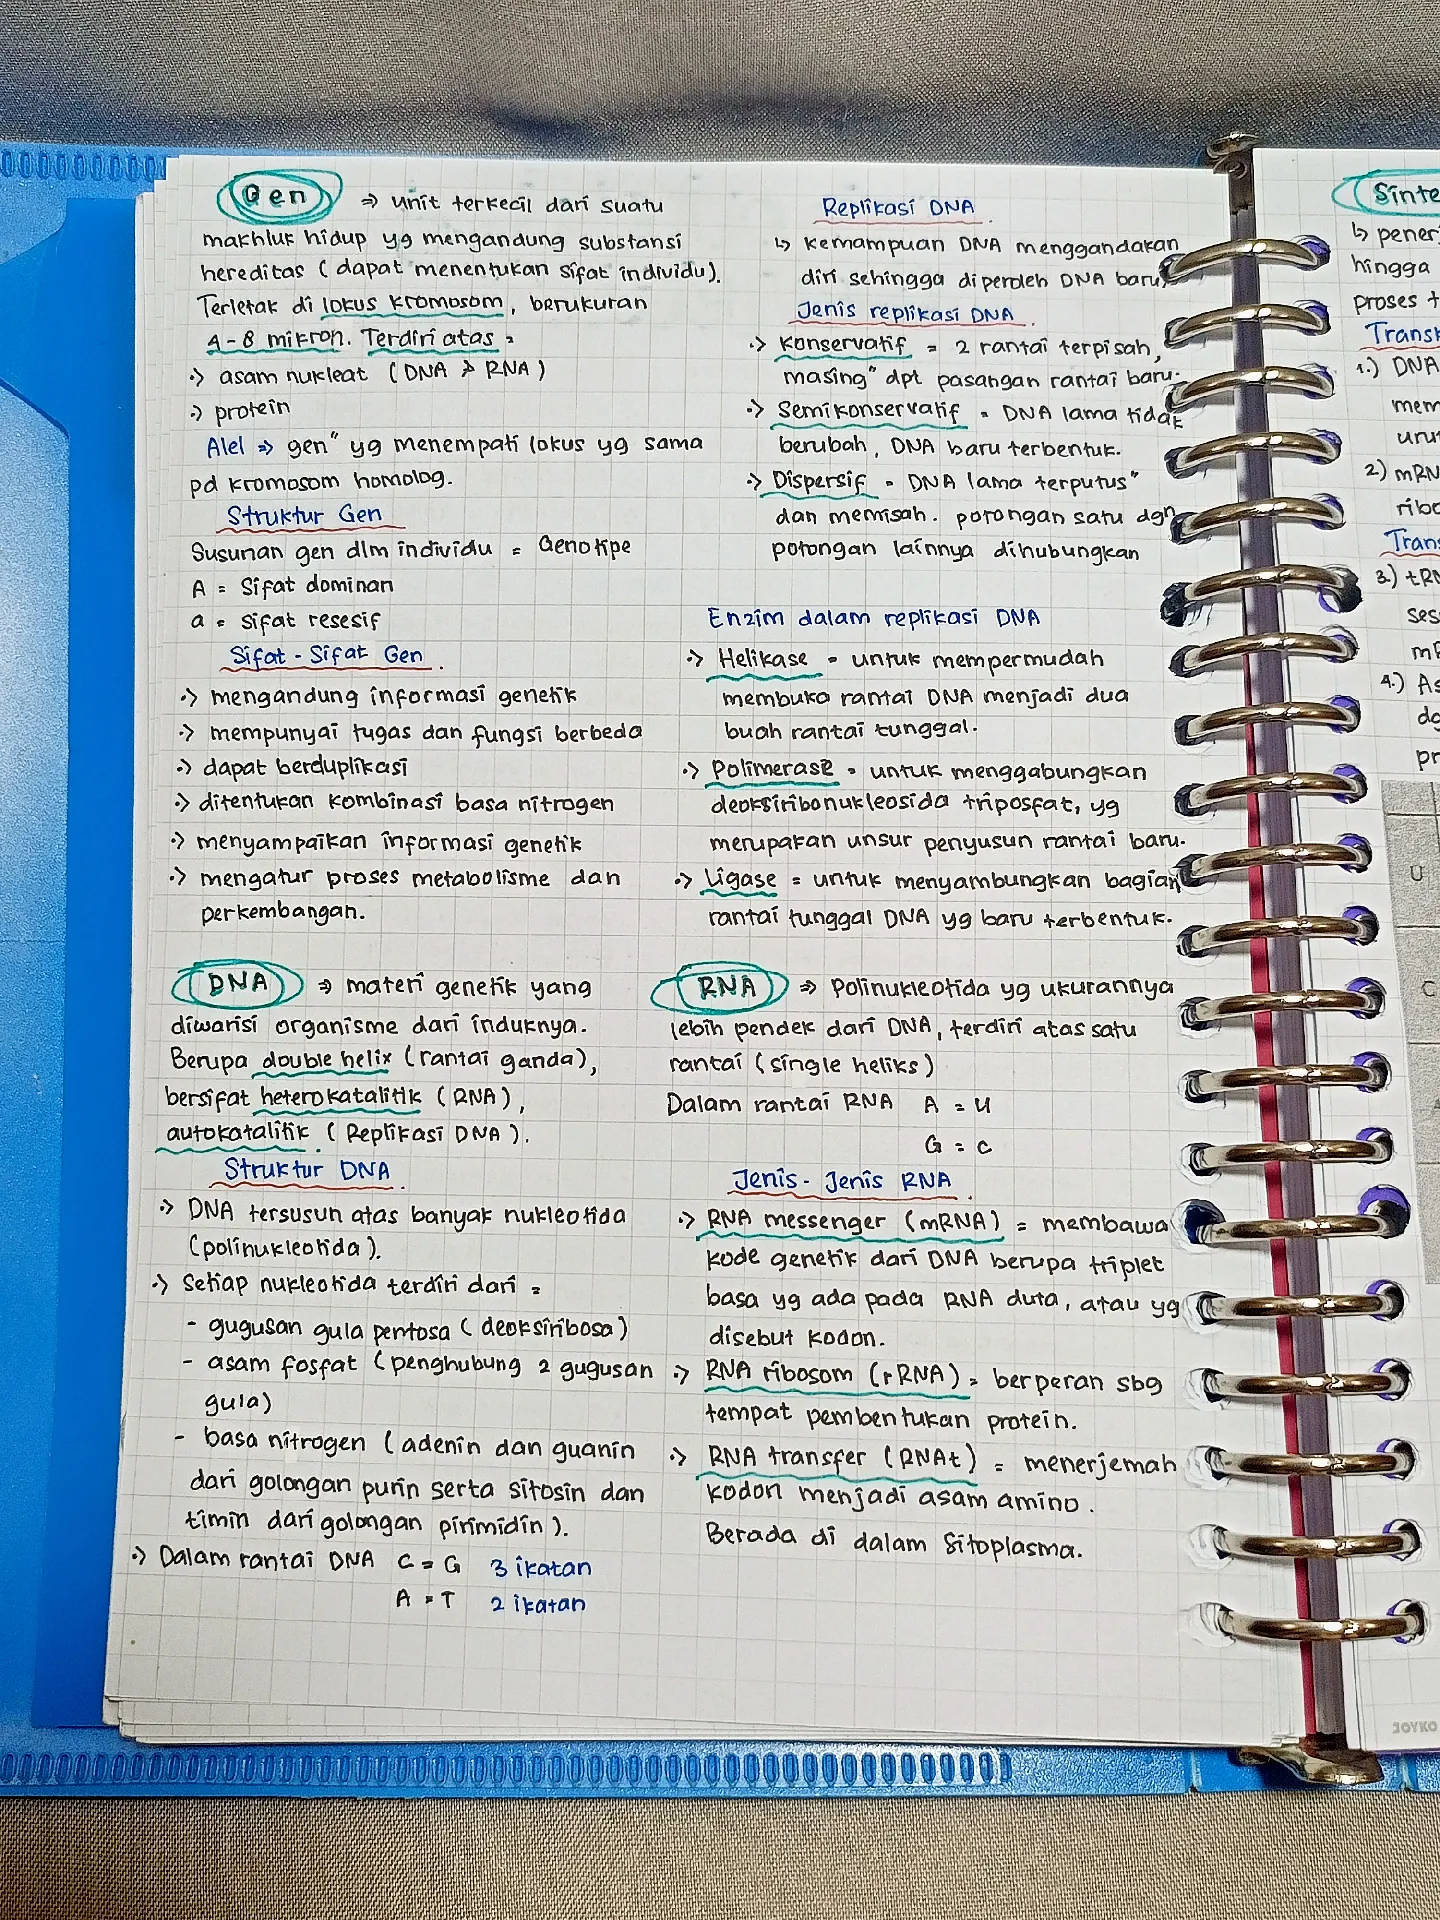 Gen ⇒ unit terkecil dari suatu
makhluk hidup yg mengandung substansi
hereditas (dapat menentukan sifat individu).
Terletak di lokus kromosom, berukuran
4-8 mikron. Terdiri atas =
·> asam nukleat (DNA & RNA)
·> protein
Alel ⇒ gen" yg menempati lokus yg sama
pd kromosom homolog.
Struktur Gen
Susunan gen dlm individu = Genotipe
A = Sifat dominan
a = sifat resesif
Sifat - Sifat Gen.
·> mengandung informasi genetik
·> mempunyai tugas dan fungsi berbeda
·> dapat berduplikasi
·> ditentukan kombinasi basa nitrogen
·> menyampaikan informasi genetik
·> mengatur proses metabolisme dan
perkembangan.
DNA ⇒ materi genetik yang
diwarisi organisme dari induknya.
Berupa double helix (rantai ganda),
bersifat heterokatalitik (RNA),
autokatalitik (Replikasi DNA).
Struktur DNA.
·> DNA tersusun atas banyak nukleotida
(polinukleotida).
·> Setiap nukleotida terdiri dari =
- gugusan gula pentosa (deoksiribosa)
- asam fosfat (penghubung 2 gugusan
gula)
- basa nitrogen (adenin dan guanin
dari golongan purin serta sitosin dan
timin dari golongan pirimidin).
·> Dalam rantai DNA C = G 3 ikatan
A = T 2 ikatan
Replikasi DNA.
↳ kemampuan DNA menggandakan
diri sehingga diperoleh DNA baru.
Jenis replikasi DNA.
·> Konservatif = 2 rantai terpisah,
masing" dpt pasangan rantai baru.
·> Semikonservatif = DNA lama tidak
berubah, DNA baru terbentuk.
·> Dispersif = DNA lama terputus"
dan memisah. potongan satu dgn
potongan lainnya dihubungkan
Enzim dalam replikasi DNA
·> Helikase = untuk mempermudah
membuka rantai DNA menjadi dua
buah rantai tunggal.
·> Polimerase = untuk menggabungkan
deoksiribonukleosida triposfat, yg
merupakan unsur penyusun rantai baru.
·> Ligase = untuk menyambungkan bagian
rantai tunggal DNA yg baru terbentuk.
RNA ⇒ Polinukleotida yg ukurannya
lebih pendek dari DNA, terdiri atas satu
rantai (single heliks)
Dalam rantai RNA A = U
G = C
Jenis - Jenis RNA.
·> RNA messenger (mRNA) = membawa
kode genetik dari DNA berupa triplet
basa yg ada pada RNA duta, atau yg
disebut kodon.
·> RNA ribosom (rRNA) = berperan sbg
tempat pembentukan protein.
·> RNA transfer (RNAt) = menerjemah
kodon menjadi asam amino.
Berada di dalam Sitoplasma.
Sinte
↳ penerj
hingga
proses t
Transk
1.) DNA
mem
urut
2) mRN
ribo
Trans
3.) tRN
ses
mR
4.) As
dg
pr
U
C
JOYKO